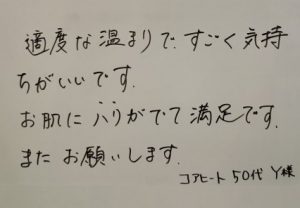 適度な温まりで、すごく気持
ちがいいです.
お肌にハリがでて満足です.
またお願いします.
コアヒート 50代 Y様